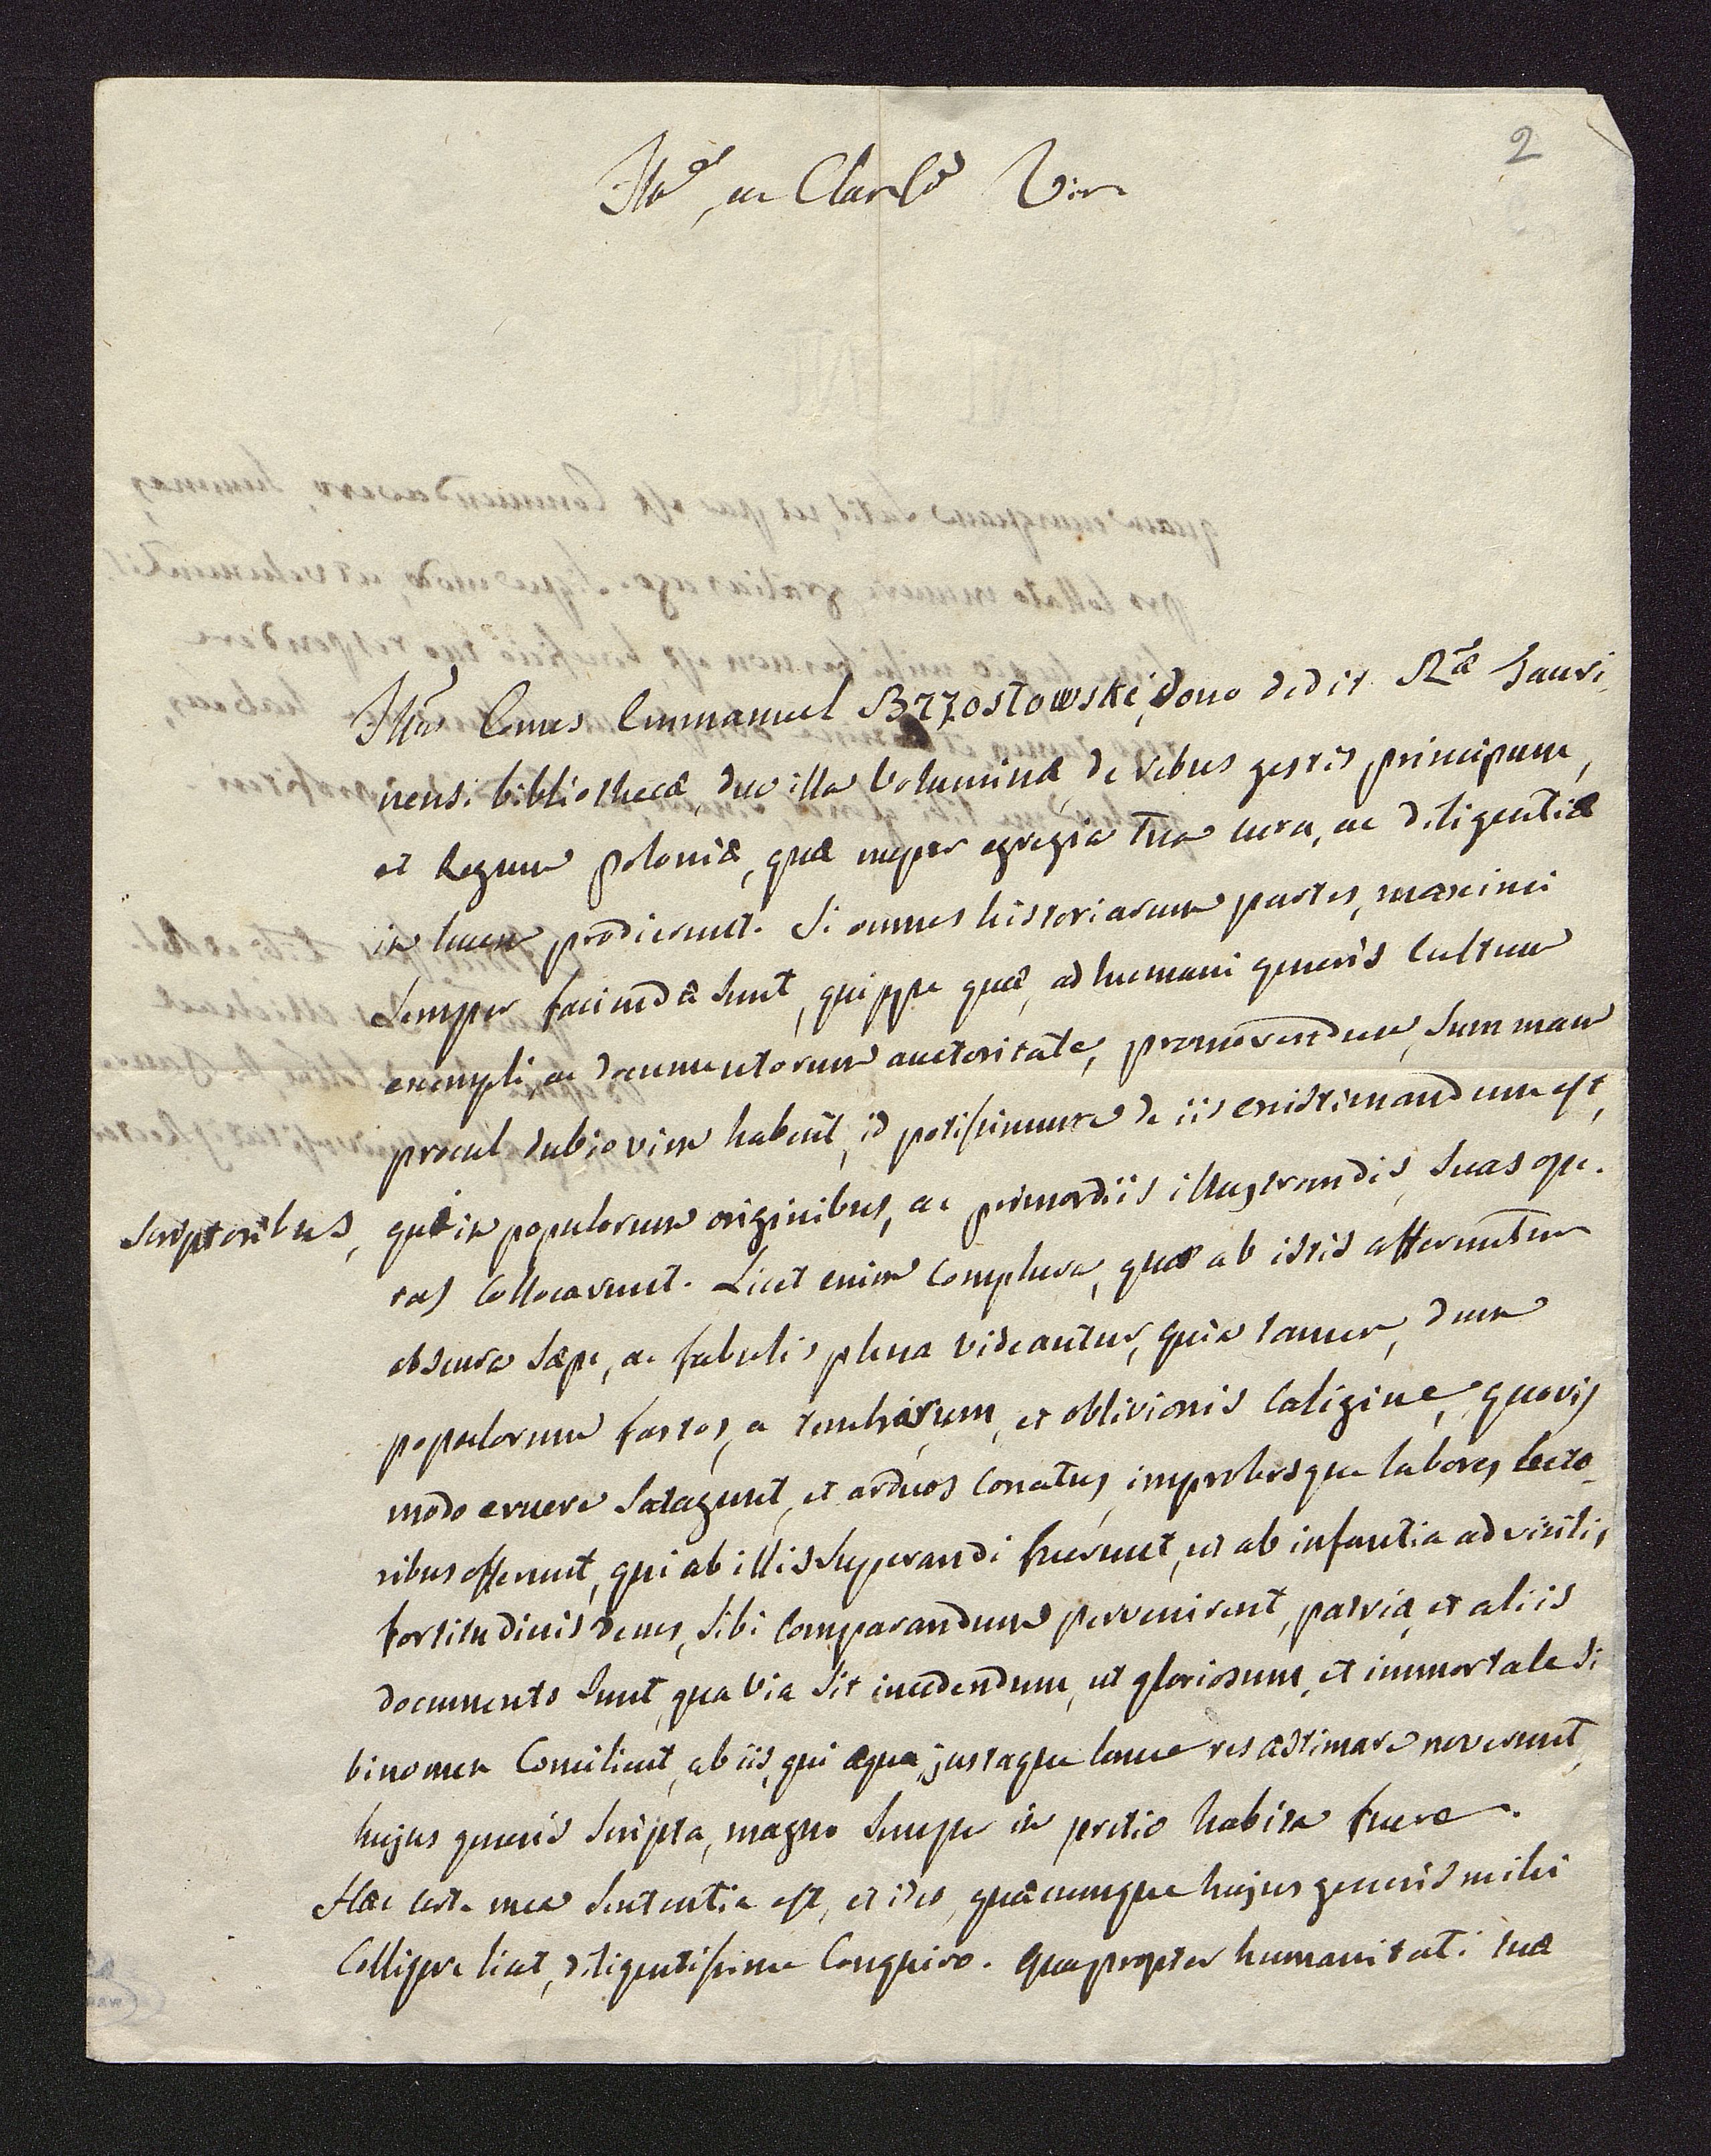 2
Illo, ac Clarso Viro
Illus Comes Emmanuel Brzostowski, dono dedit Rae Tauri,
nensi bibliothecæ, duo illa Volumina, de rebus gestis principum,
et Regum poloniæ, quæ nuper egregia Tua cura, ac diligentia
in lucem prodierunt. Si omnes historiarum partes, maximi
semper faciendæ sunt, quippe quæ, ad humani generis Cultum
exempli, ac documentorum auctoritate, promovendum, summam
procul dubio vim habent, id potissimum de iis existimandum est,
scriptoribus, qui in populorum originibus, ac primordiis illustrandis, suas ope-
ras Collocarunt. Licet enim Complura, quæ ab istis afferuntur
obscura sæpe, ac fabulis plena videantur, quia tamen, dum
populorum fastos, a tenebrarum, et oblivionis Caligine, quovis
modo eruere satagunt, et arduos Conatus, improbosque labores lecto-
ribus offerunt, qui ab illis superandi fuerunt, ut ab infantia ad virilis
fortitudinis decus, sibi Comparandum pervenirent, patriæ, et aliis
documento sunt, qua via sit incedendum, ut gloriosum, et immortale si-
bi nomen Concilient, ab iis, qui æqua, justaque lance res æstimare noverunt,
hujus generis scripta, magno semper in pretio habita fuere.
Hæc certe mea sententia est, et ideo, quæcumque hujus generis mihi
Colligere licet, diligentissime Conquiro. Quapropter humanitati tuæ